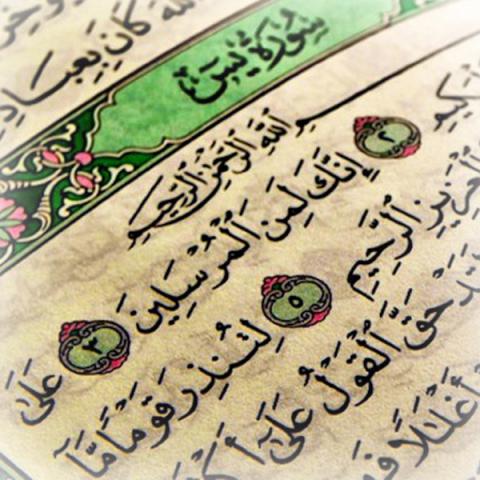 كَانَ بِعِبَادِ
سُورَةُ يسٓ
ٱللَّهِ ٱلرَّحْمَٰنِ ٱلرَّحِيمِ
٢ إِنَّكَ لَمِنَ ٱلْمُرْسَلِينَ ٣ عَلَىٰ
ٱلْعَزِيزِ ٱلرَّحِيمِ ٥ لِتُنذِرَ قَوْمًا مَّآ
حَقَّ ٱلْقَوْلُ عَلَىٰٓ
أَغْلَٰلًا